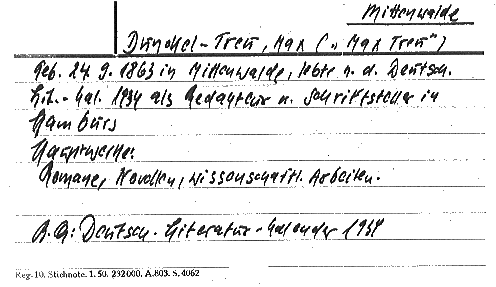 Mittenwalde
Dunckel-Treu, Max ("Max Treu")
Geb. 24. 9. 1863 in Mittenwalde, lebte n. d. Deutsch.
Lit.-Kal. 1934 als Redakteur u. Schriftsteller in
Hamburg
Hauptwerke:
Romane, Novellen, wissenschaftl. Arbeiten.
Deutsch. Literatur-Kalender 1934
Reg-10. Stichnote. 1. 50. 232000. A.803. S. 4062